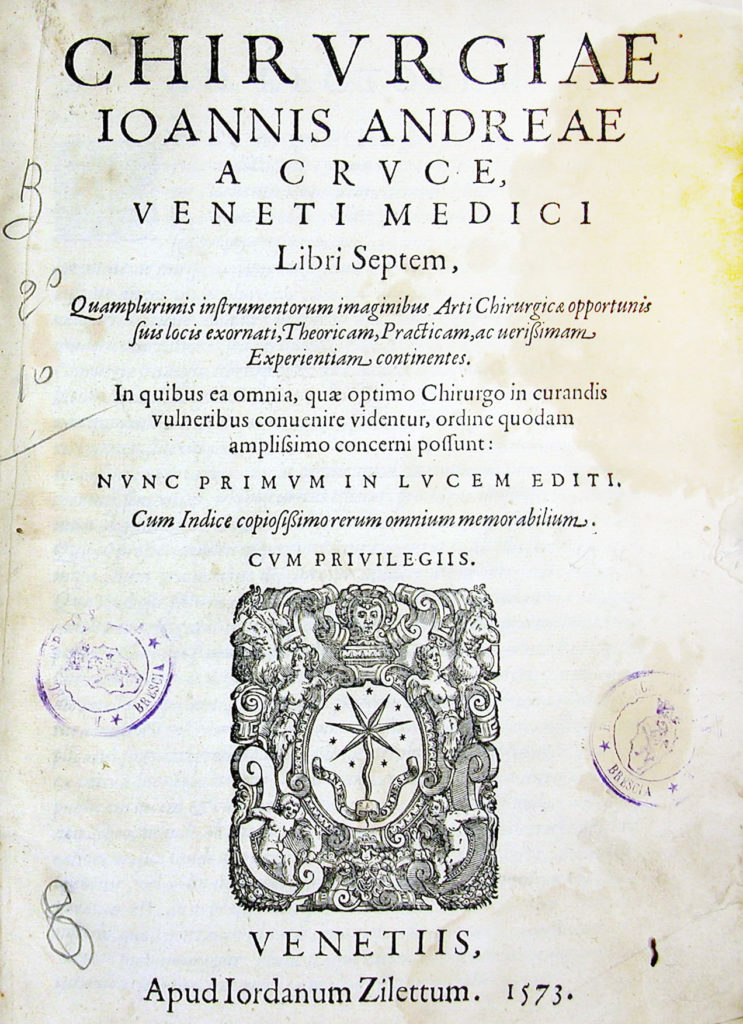 CHIRVRGIAE
IOANNIS ANDREAE
A CRVCE,
VENETI MEDICI
Libri Septem,
Quamplurimis inſtrumentorum imaginibus Arti Chirurgicæ opportunis
ſuis locis exornati, Theoricam, Practicam, ac ueriſsimam
Experientiam continentes.
In quibus ea omnia, quæ optimo Chirurgo in curandis
vulneribus conuenire videntur, ordine quodam
ampliſsimo concerni poſſunt:
NVNC PRIMVM IN LVCEM EDITI.
Cum Indice copioſiſsimo rerum omnium memorabilium.
CVM PRIVILEGIIS.
BRESCIA
BRESCIA
VENETIIS,
Apud Iordanum Zilettum. 1573.
B
20
10
8